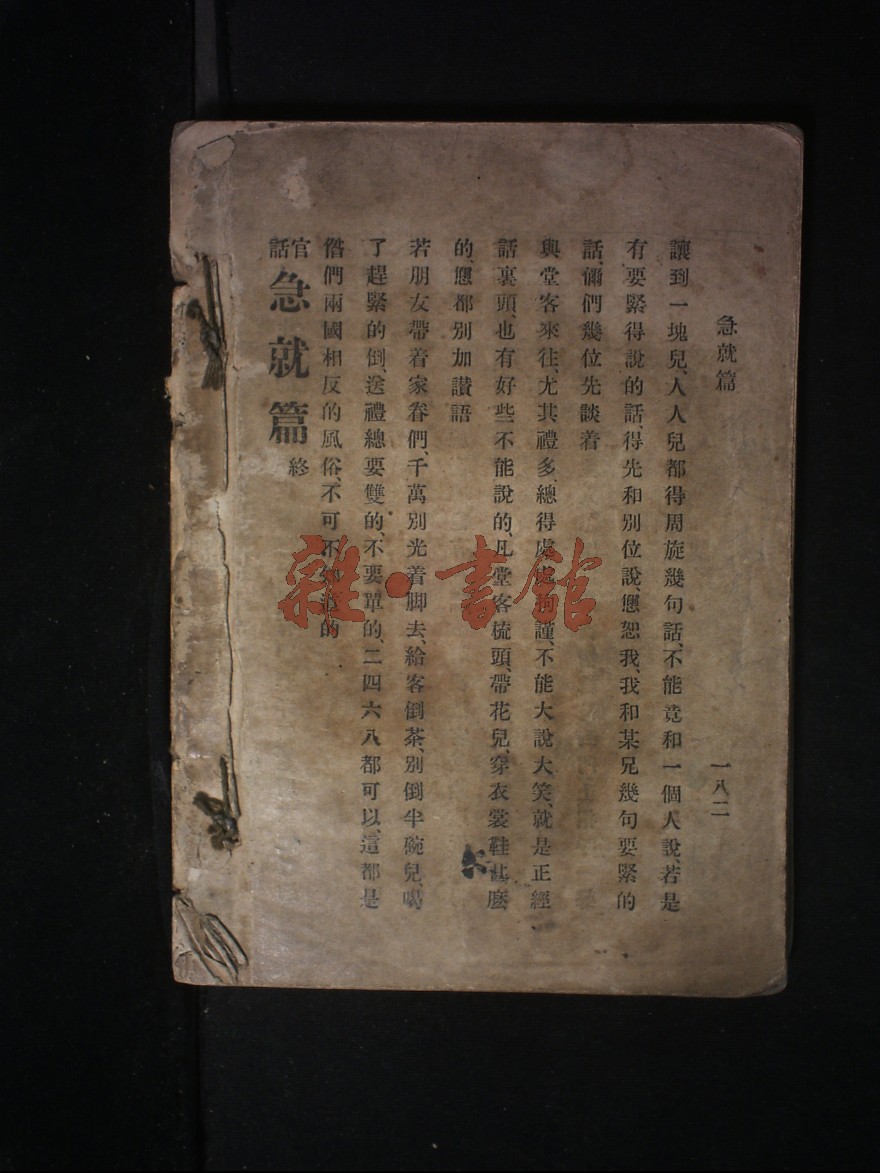 急就篇
一八二
讓到一塊兒、人人兒都得周旋幾句話、不能竟和一個人說、若是
有要緊得說的話、得先和別位說、您恕我、我和某兄幾句要緊的
話、你們幾位先談着
與堂客來往、尤其禮多、總得處處拘謹、不能大說大笑、就是正經
話裏頭、也有好些不能說的、凡堂客梳頭、帶花兒、穿衣裳鞋甚麽
的、您都別加讃語
若朋友帶着家眷們、千萬別光着脚去、給客倒茶、別倒半碗兒、喝
了趕緊的倒、送禮總要雙的、不要單的、二四六八都可以、這都是
偺們兩國相反的風俗、不可不知道的
官話 急就篇 終
雜·書館